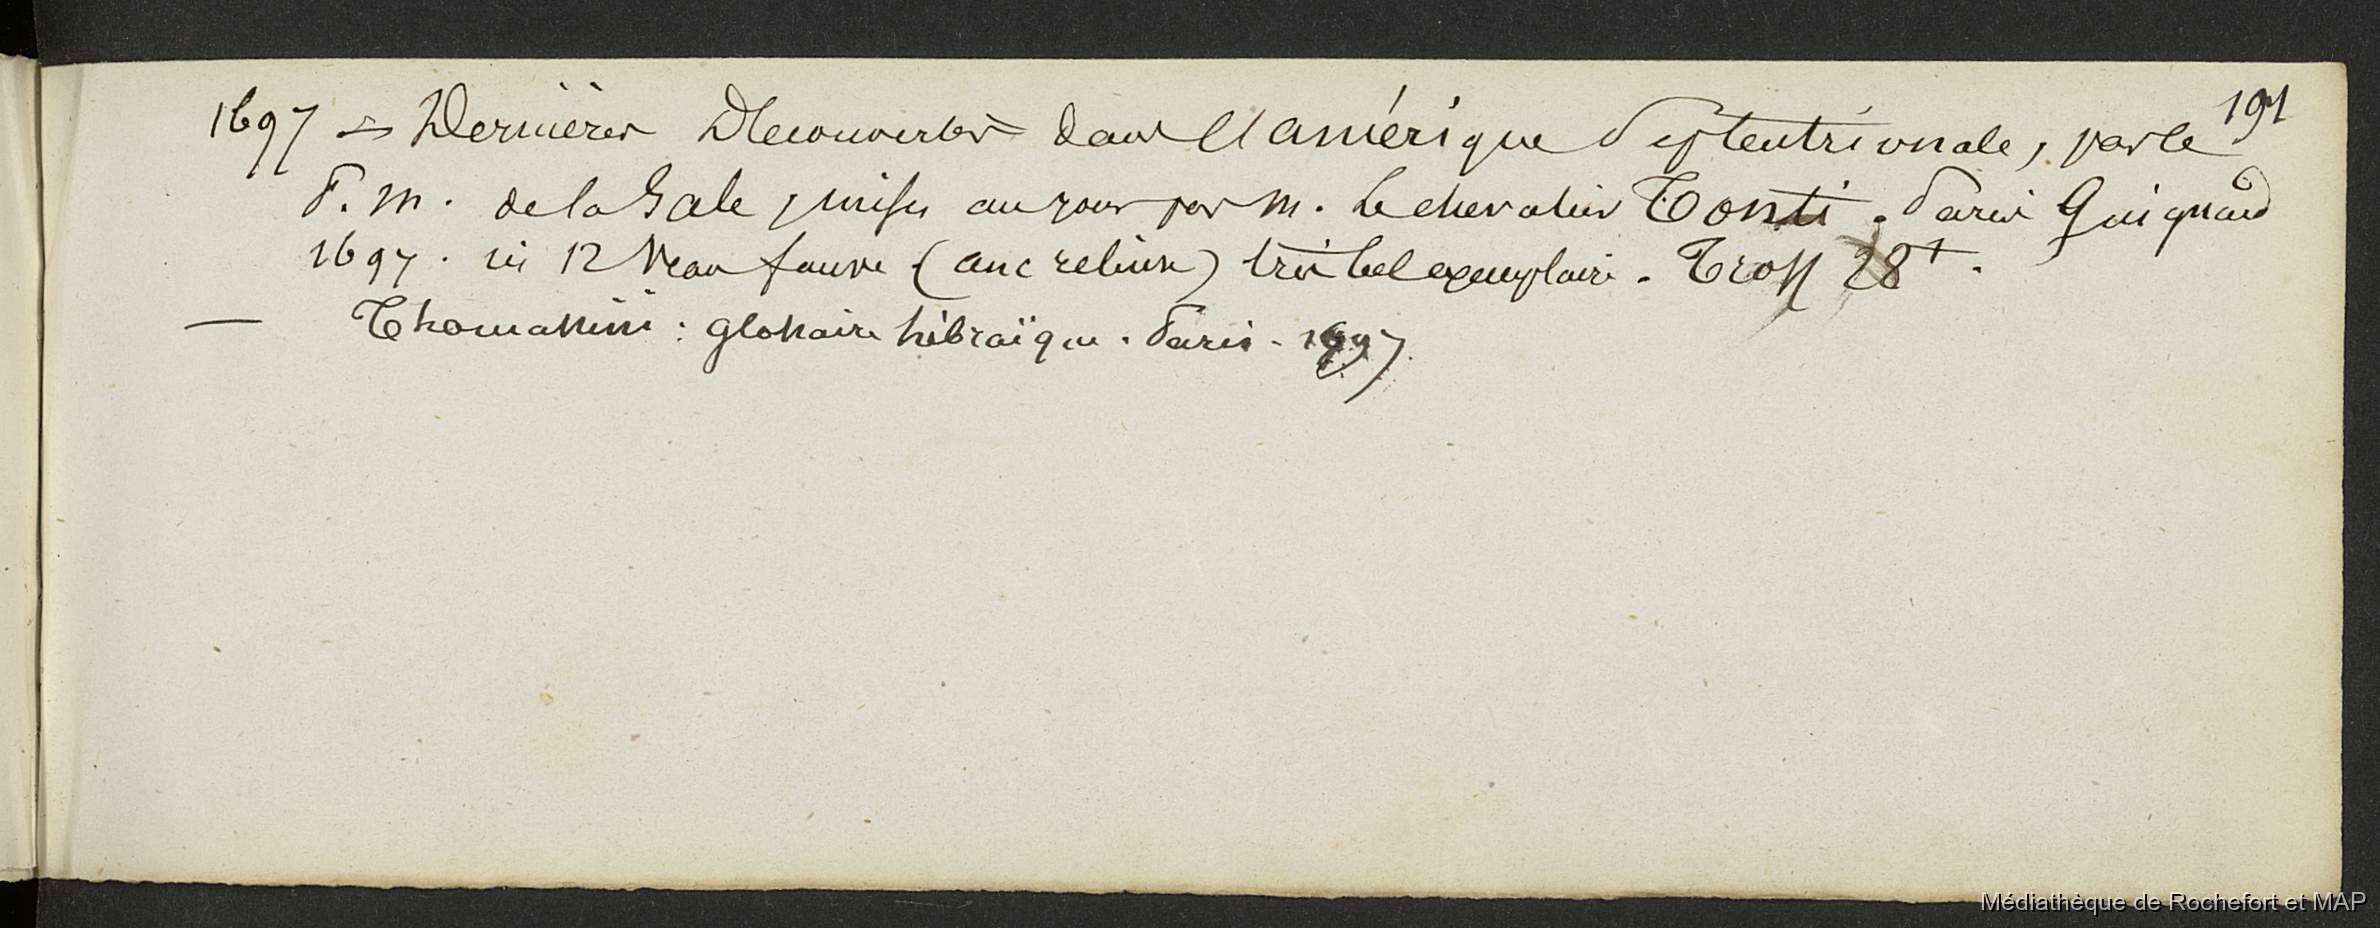 191
1697 = Dernières Decouvertes dans l'amérique Septentrionale, par le
P. M. de la Sale, mises au jour par M. Le chevalier Tonti. Paris Guignard
1697. in 12 Veau fauve (anc reliure) très bel exemplaire. Tross 28 f.
— Thomassini : glossaire hébraïque. Paris. 1697
Médiathèque de Rochefort et MAP